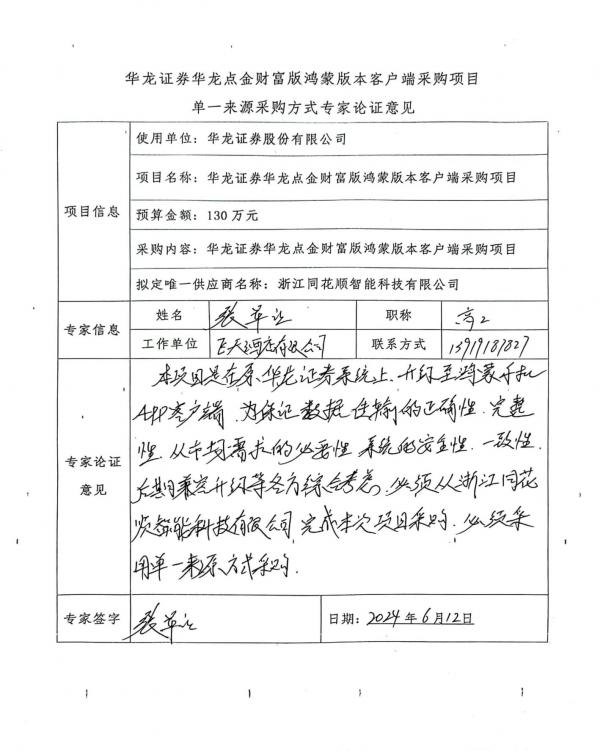 华龙证券华龙点金财富版鸿蒙版本客户端采购项目
单一来源采购方式专家论证意见
项目信息
使用单位：华龙证券股份有限公司
项目名称：华龙证券华龙点金财富版鸿蒙版本客户端采购项目
预算金额：130万元
采购内容：华龙证券华龙点金财富版鸿蒙版本客户端采购项目
拟定唯一供应商名称：浙江同花顺智能科技有限公司
专家信息
姓名
职称 高工
工作单位 飞天酒店有限公司
联系方式 13919187827
专家论证
意见
本项目是在原华龙证券系统上，升级至鸿蒙手机
APP客户端，为保证数据传输的正确性、完整
性，从市场需求的必要性，系统的安全性、一致性、
后期兼容升级等各方综合考虑，必须从浙江同花
顺智能科技有限公司完成本次项目采购，必须采
用单一来源方式采购.
专家签字
日期：2024年6月12日